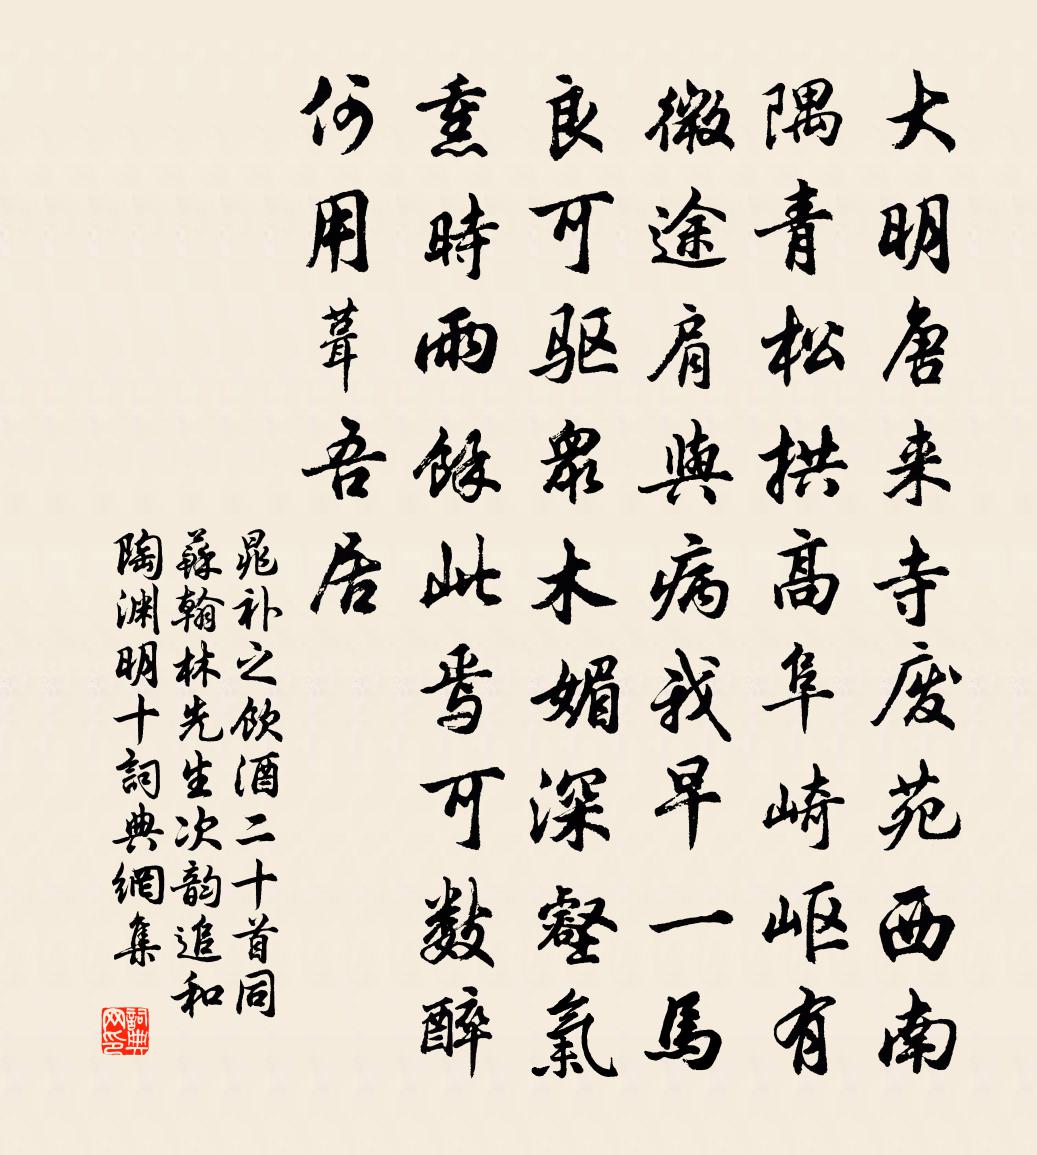 大明唐来寺废苑西南
隅青松拱髙阜崎岖有
微途肩與病我早一馬
良可驱眾木媚深壑氣
熏時雨餘此焉可数醉
何用葺吾居
晁补之飲酒二十首同
蘇翰林先生次韵追和
陶渊明十詞典網集
詞典网印